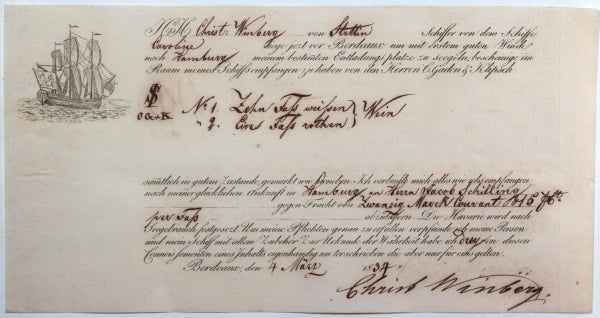 Christ: Winberg von Stettin Schiffer von dem Schiffe
Caroline liege jezt vor Bordeaux um mit erstem guten Winde
nach Hamburg meinem bestimten Entladungs platze zu Seegeln, bescheinige im
Raum meines Schiffs empfangen zu haben von den Herren C. Gaden & Klipsch
G & K
Nº 1. Zehn Faß weißen
" 2. Ein Faß rothen } Wein
sämtlich in gutem Zustande, gemarkt wie Ich verbinde mich alles wie ichs empfangen
nach meiner glücklichen Ankunft in Hamburg an Herrn Jacob Schilling
gegen Fracht von Zwanzig Marck Courant & 15 %
per Faß abzuliefern. Die Havarie wird nach
Seegebrauch festgesezt. Um meine Pflichten genau zu erfüllen verpfände ich meine Person
und mein Schif mit allem Zubehör. Zur Urkunde der Wahrheit habe ich Drey von diesen
Connoissementen eines Inhalts eigenhändig unterschrieben die aber nur für eins gelten.
Bordeaux, den 4 März 1834.
Christ Winberg.